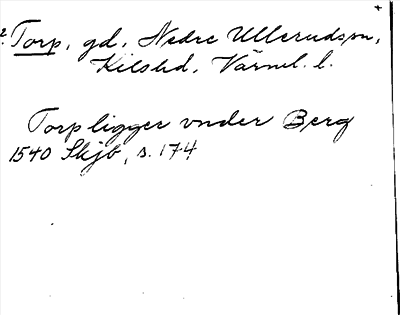 2. Torp, gd, Nedre Ullerudsn,
Kilshd, Värml. l.
Torp ligger vnder Berg
1540 Skjb, s. 174